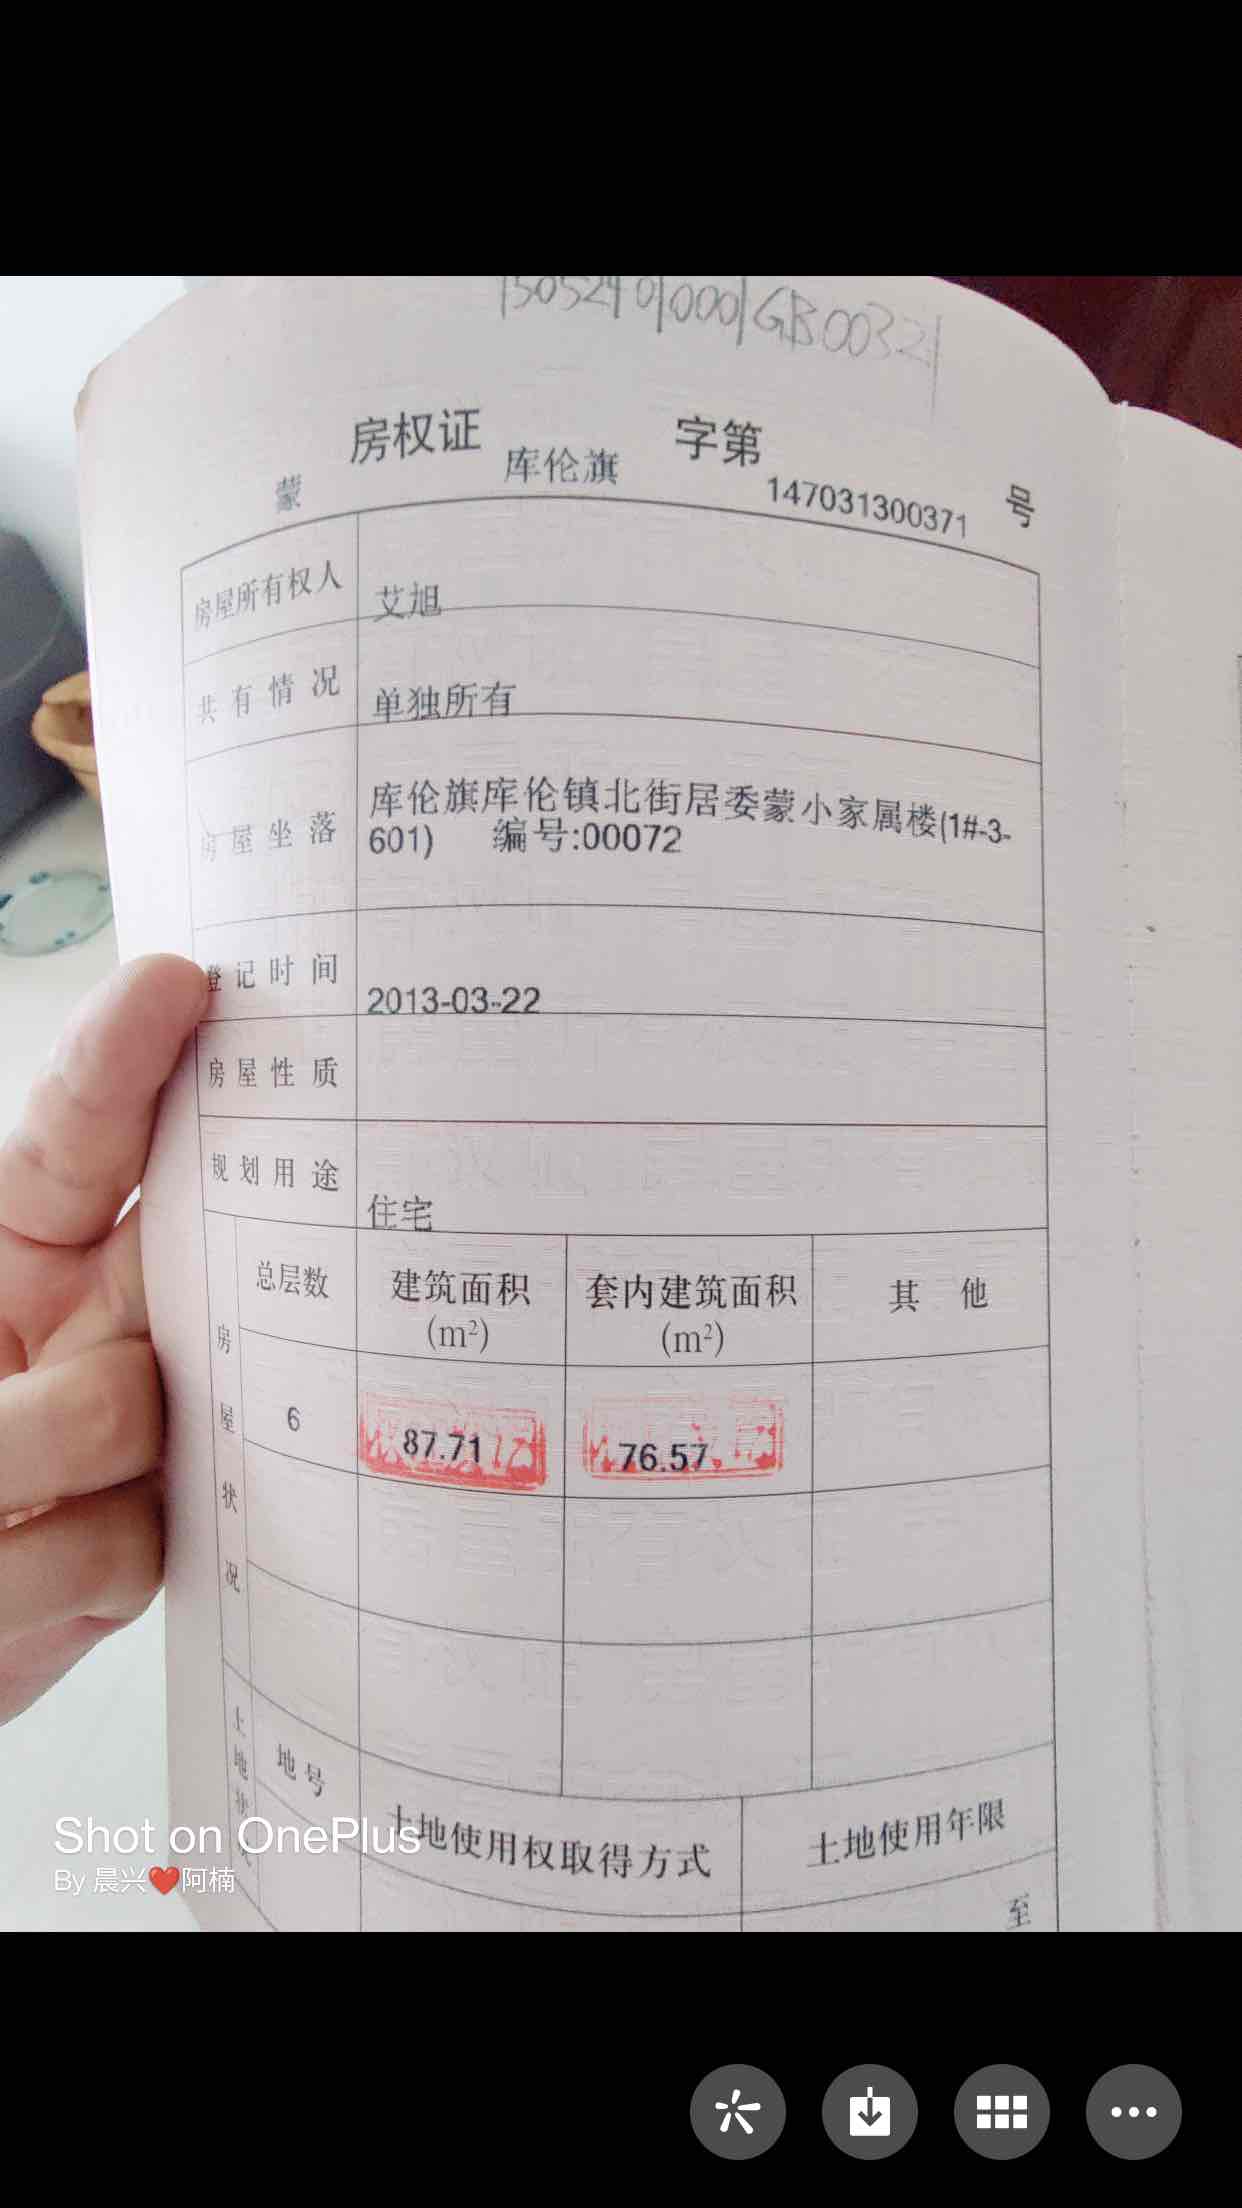 1505241010001GB00321
蒙 房权证 库伦旗 字第 147031300371 号
房屋所有权人 艾旭
共有情况 单独所有
房屋坐落 库伦旗库伦镇北街居委蒙小家属楼(1#-3-
601) 编号:00072
登记时间 2013-03-22
房屋性质
规划用途 住宅
房屋状况
总层数 建筑面积 套内建筑面积 其他
(m²) (m²)
6 87.71 76.57
土地状
地号 土地使用权取得方式 土地使用年限
至
Shot on OnePlus
By 晨兴❤️阿楠